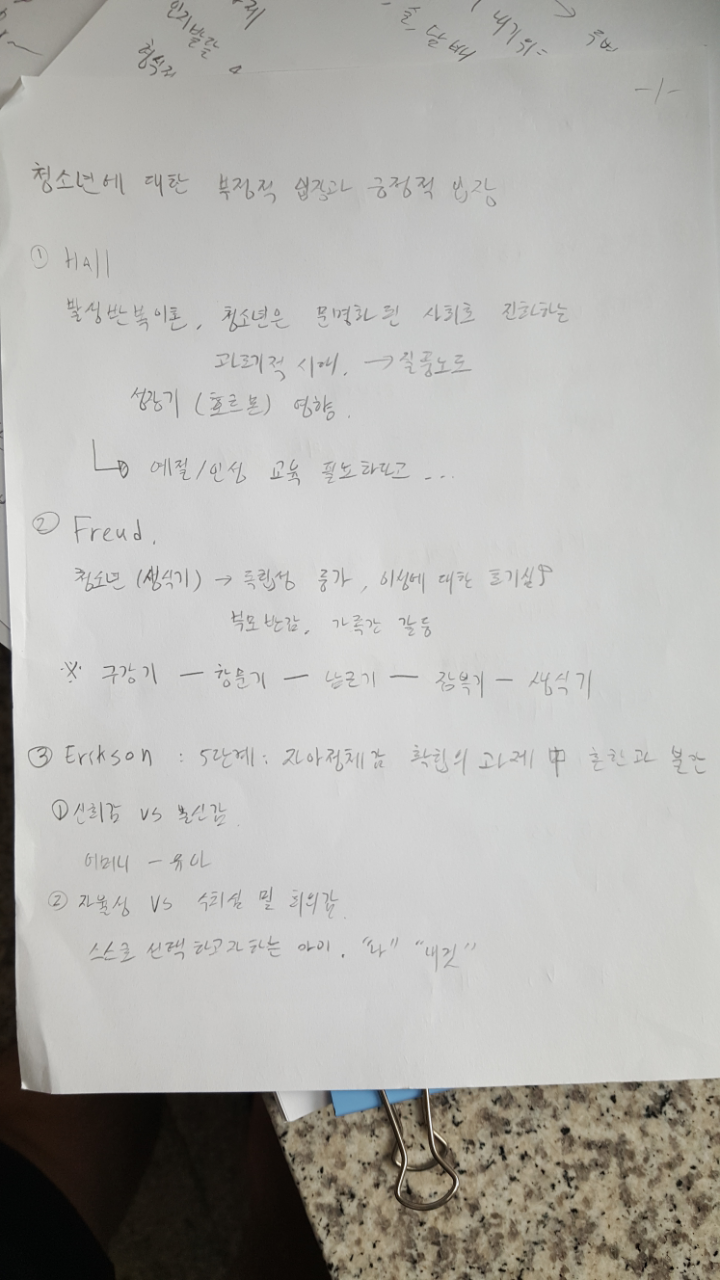 인지발달
형식적
술, 담배
내기위=
→ 주변
-1-
청소년에 대한 부정적 입장과 긍정적 입장
① Hall
발생반복이론, 청소년은 문명화된 사회로 진화하는
과도기적 시대. → 질풍노도
성장기 (호르몬) 영향.
↳ 예절/인성 교육 필요하다고 ...
② Freud.
청소년 (생식기) → 독립성 증가, 이성에 대한 호기심↑
부모반감, 가족간 갈등
※ 구강기 — 항문기 — 남근기 — 잠복기 — 생식기
③ Erikson : 5단계: 자아정체감 확립의 과제 中 혼란과 불안
① 신뢰감 vs 불신감
어머니 — 유아
② 자율성 vs 수치심 및 회의감
스스로 선택하고자하는 아이. "나" "내것"